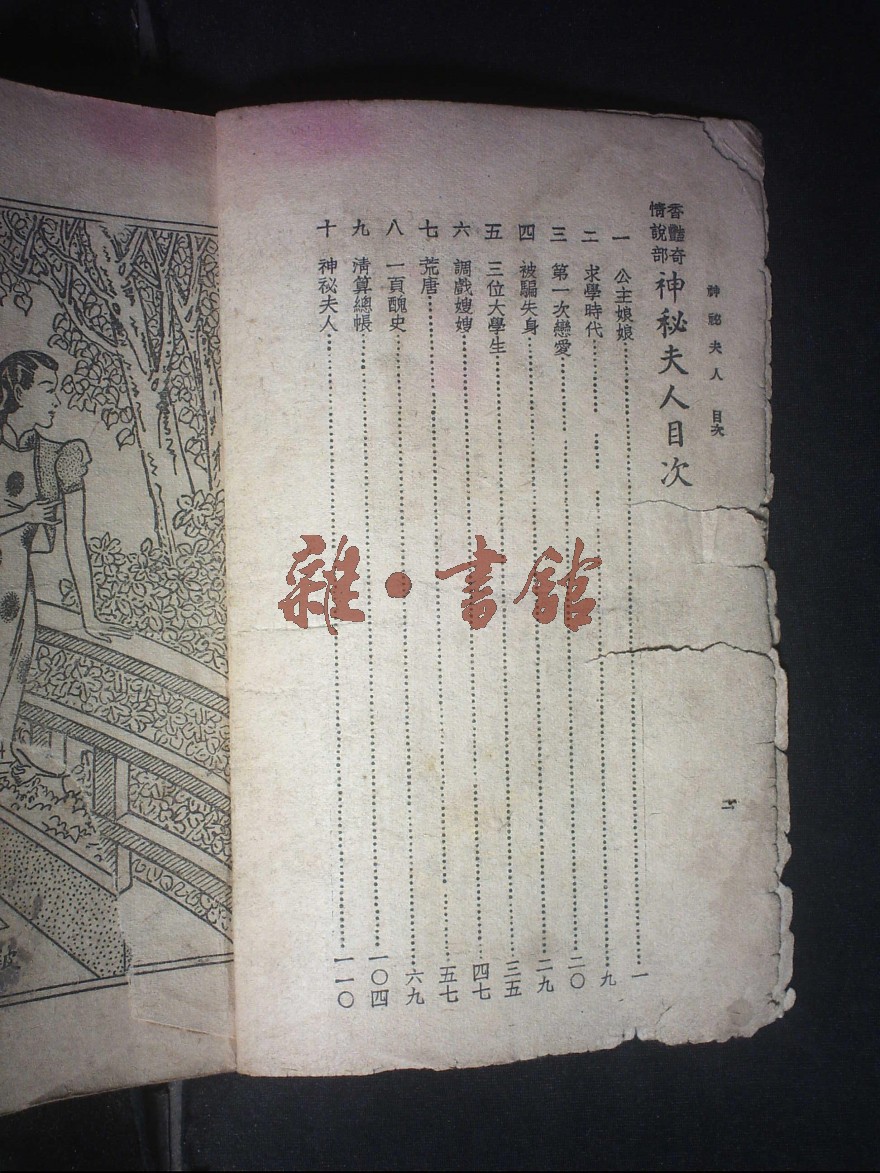 神祕夫人 目次
香豔奇情說部 神秘夫人目次
一 公主娘娘……一
二 求學時代……九
三 第一次戀愛……二〇
四 被騙失身……二九
五 三位大學生……三五
六 調戲嫂嫂……四七
七 荒唐……五七
八 一頁醜史……六九
九 清算總帳……一〇四
十 神祕夫人……一一〇
雜·書館